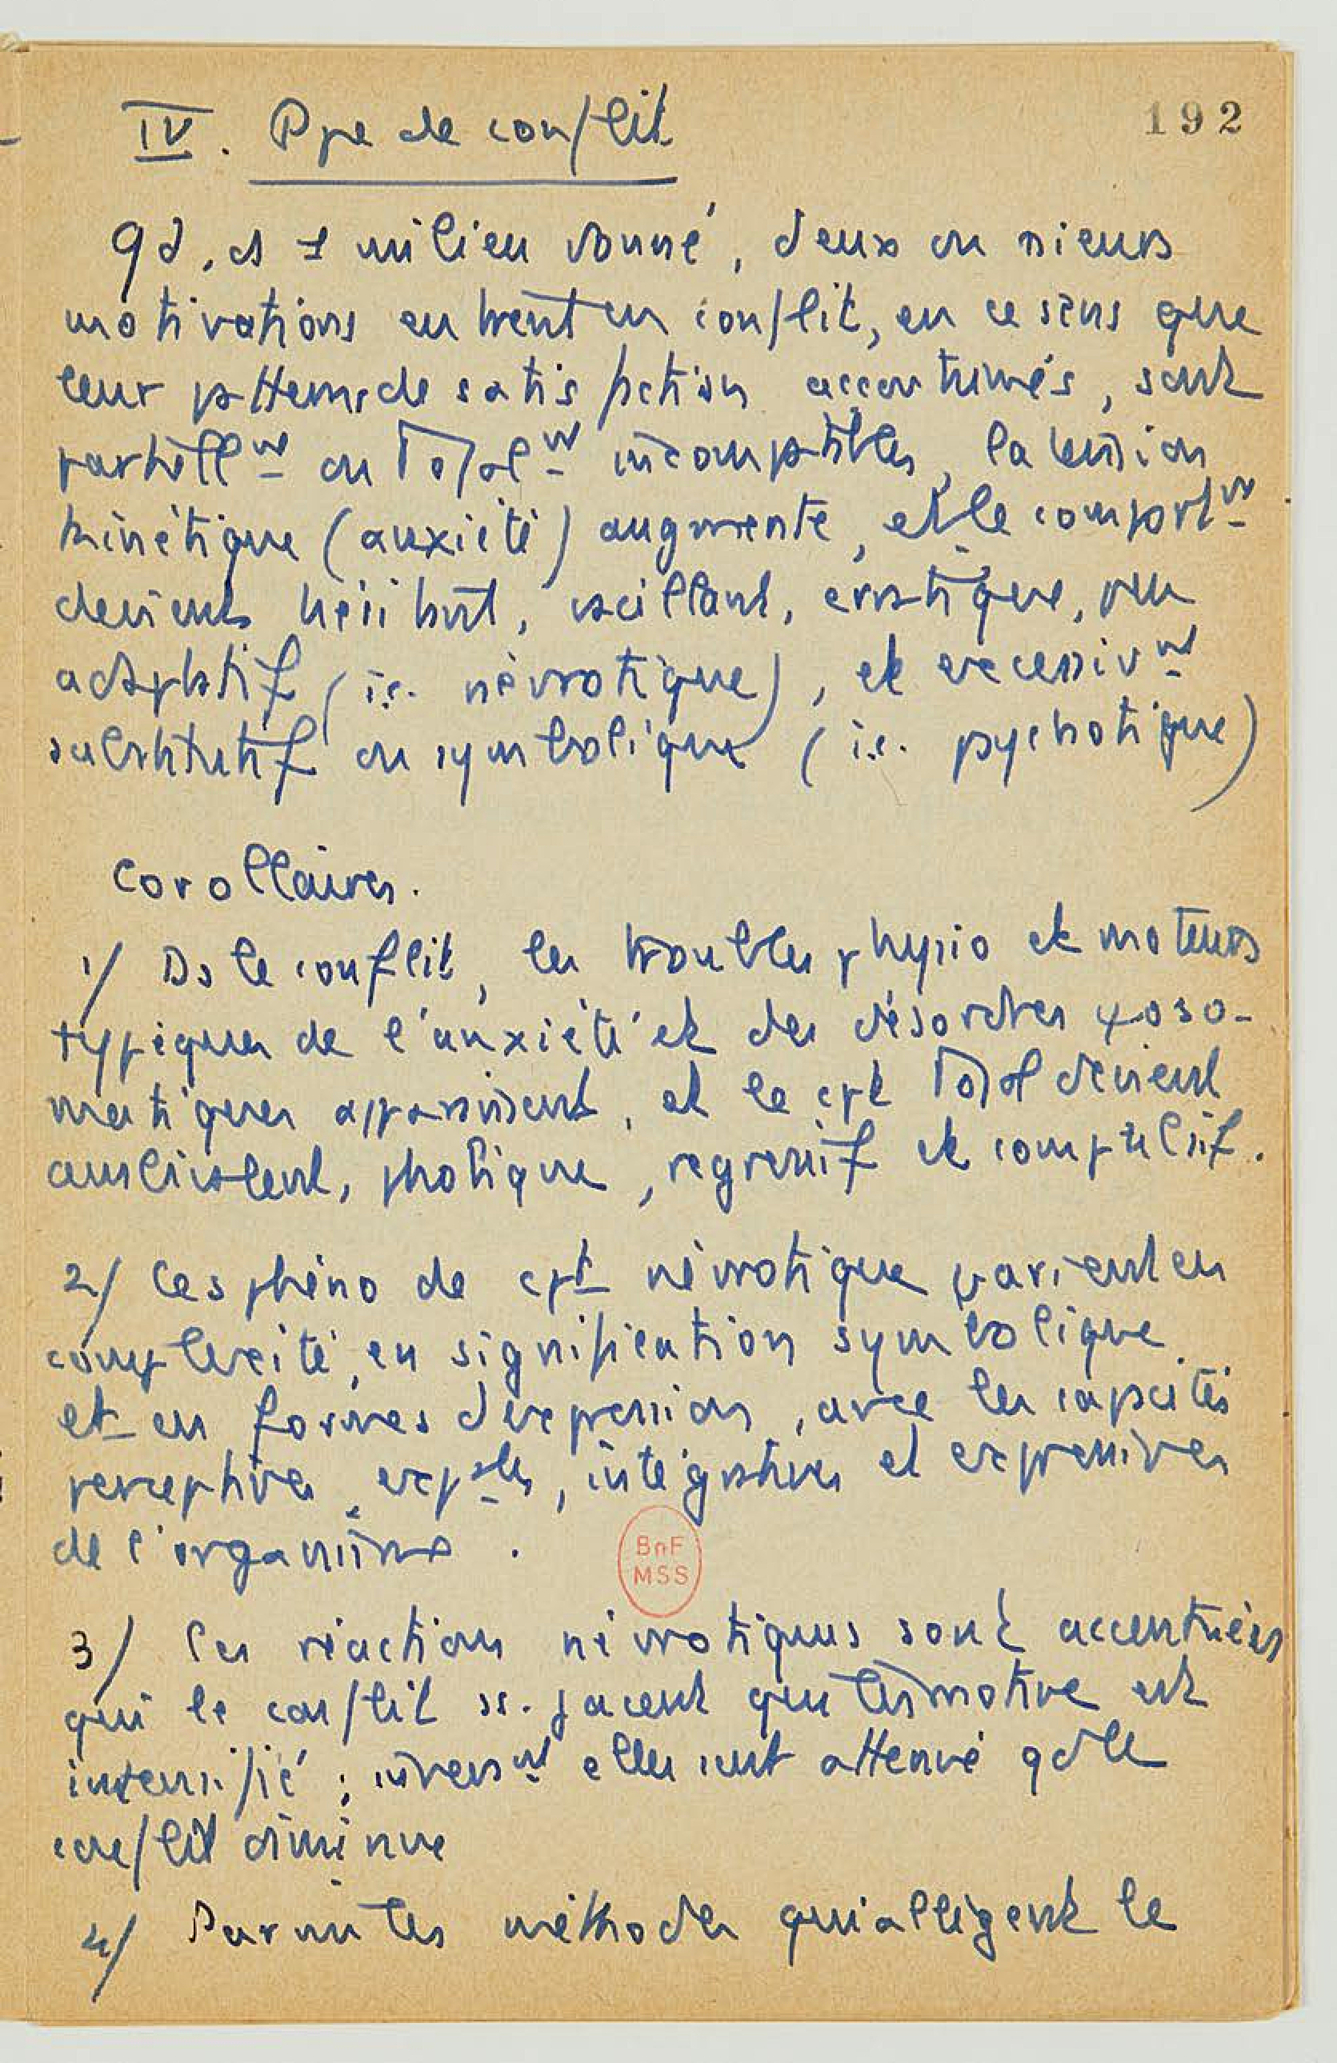 192
IV. Ppe de conflit
Qd, ds 1 milieu donné, deux ou sieurs
motivations entrent en conflit, en ce sens que
leur patterns de satisfaction accoutumés, sont
partiellmt ou totalmt incompatibles, la tension
kinétique (anxiété) augmente, et le comportmt
devient hésitant, oscillant, erratique, peu
adaptatif (i.e. névrotique), et excessivmt
substitutif ou symbolique (i.e. psychotique)
Corollaires.
1/ Ds le conflit, les troubles physio et moteurs
typiques de l'anxiété et des désordres ψoso-
matiques apparaissent, et le cpt total devient
ambivalent, phobique, regressif et compulsif.
2/ Ces phéno de cpt névrotique varient en
complexité, en signification symbolique
et en formes d'expression, avec les capacités
perceptives, intégratives et expressives
de l'organisme.
BnF
MSS
3/ Les réactions névrotiques sont accentuées
qui le conflit ss. jacent qui les motive est
intensifié; inversmt elles sont attenué qd le
conflit diminue
4/ Parmi les méthodes qui allègent le